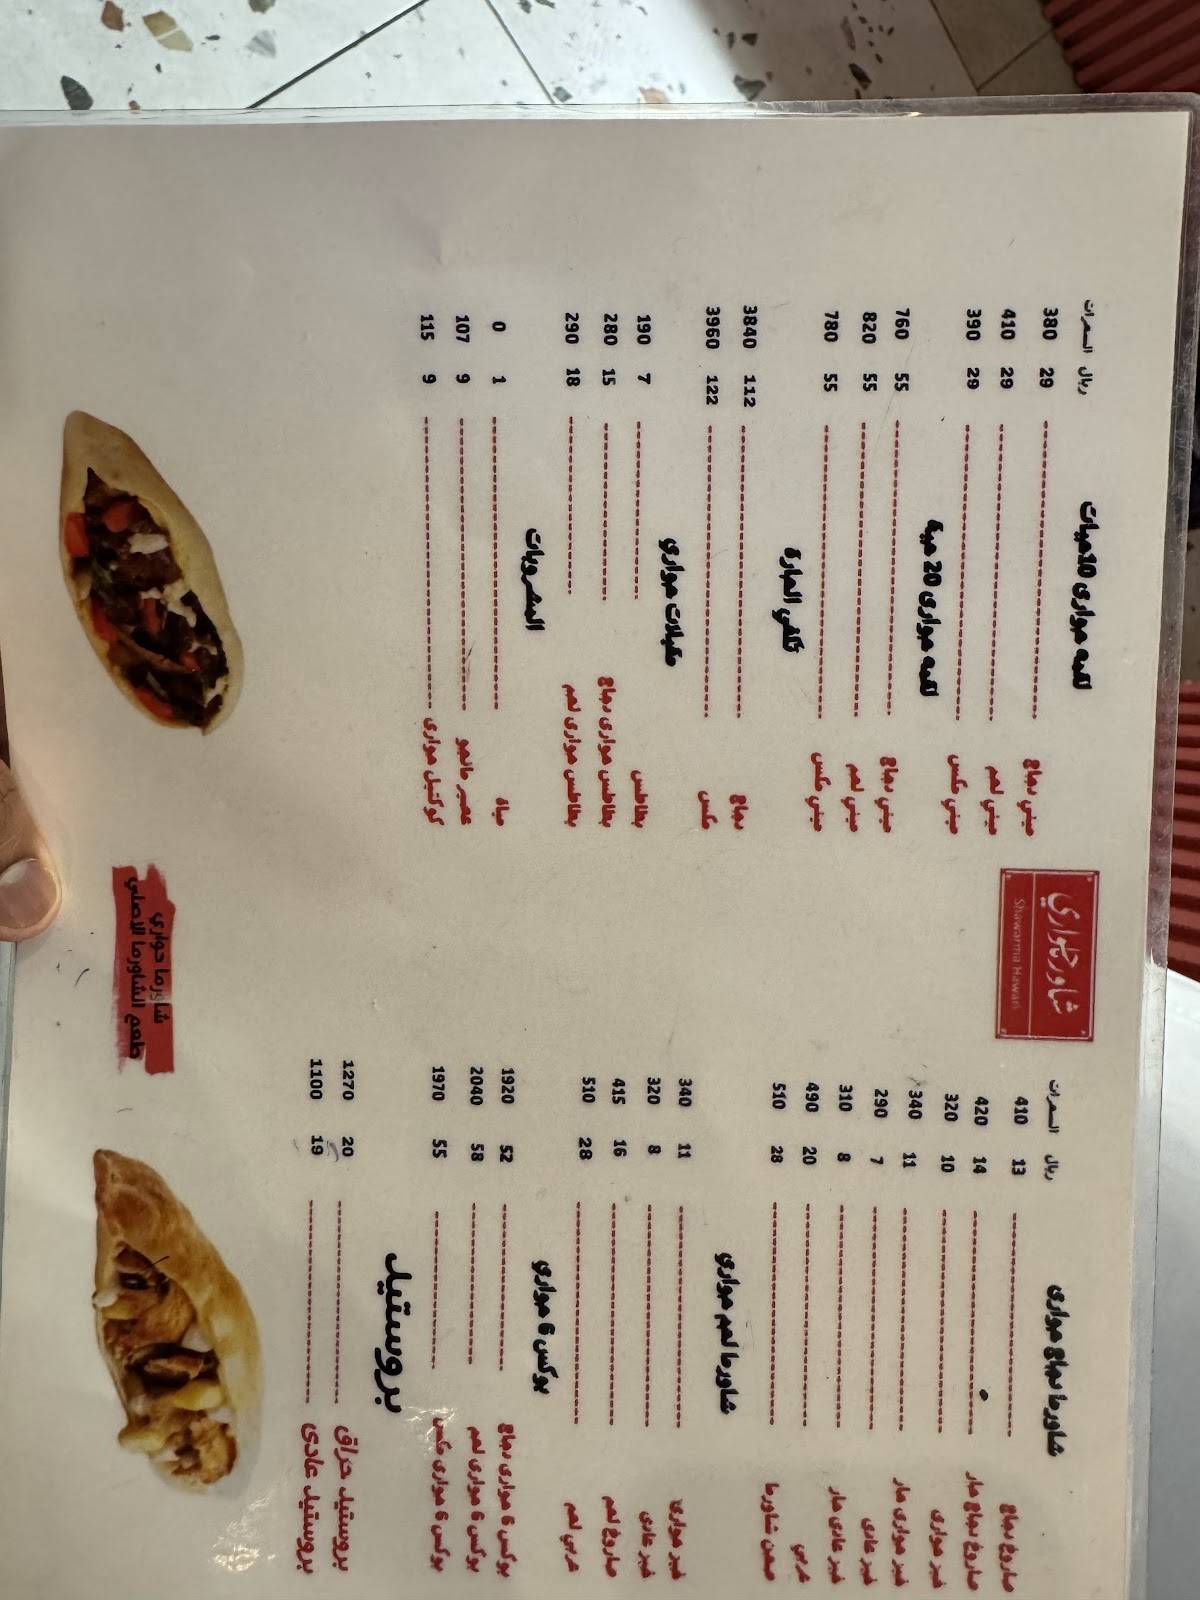 شاورما حواري
Shawarma Hawari
شاورما دجاج حواري
ريال السعرات
صاروخ دجاج 13 410
صاروخ دجاج حار 14 420
خبز حواري 10 320
خبز حواري حار 11 340
خبز عادي 7 290
خبز عادي حار 8 310
عربي 20 490
صحن شاورما 28 510
شاورما لحم حواري
خبز حواري 11 340
خبز عادي 8 320
صاروخ لحم 16 415
عربي لحم 28 510
بوكس 6 حواري
بوكس 6 حواري دجاج 52 1920
بوكس 6 حواري لحم 58 2040
بوكس 6 حواري مكس 55 1970
بروستيد
بروستيد حراق 20 1270
بروستيد عادي 19 1100
لقمه حواري 10 حبات
ريال السعرات
ميني دجاج 29 380
ميني لحم 29 410
ميني مكس 29 390
لقمه حواري 20 حبة
ميني دجاج 55 760
ميني لحم 55 820
ميني مكس 55 780
تكفي الحارة
دجاج 112 3840
مكس 122 3960
مقبلات حواري
بطاطس 7 190
بطاطس حواري دجاج 15 280
بطاطس حواري لحم 18 290
المشروبات
مياة 1 0
عصير مانجو 9 107
كوكتيل حواري 9 115
شاورما حواري
طعم الشاورما الاصلي